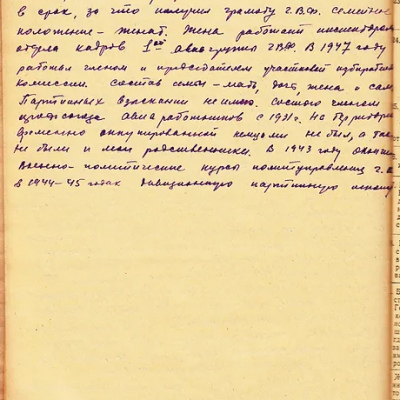 в срок, за что получил грамоту Г.В.Ф. Семейное
положение – женат. Жена работает инспектором
отдела кадров 1ой авиагруппы ГВФ. В 1947 году
работал членом и председателем участковой избирательной
комиссии. Состав семьи – мать, дочь, жена и сам.
Партийных взысканий не имею. Состою членом
профсоюза авиаработников с 1931 г. На территории
временно оккупированной немцами не был, а так
не были и мои родственники. В 1943 году окончил
Военно-политические курсы политуправления г.
в 1944–45 годах дивизионную партийную школу